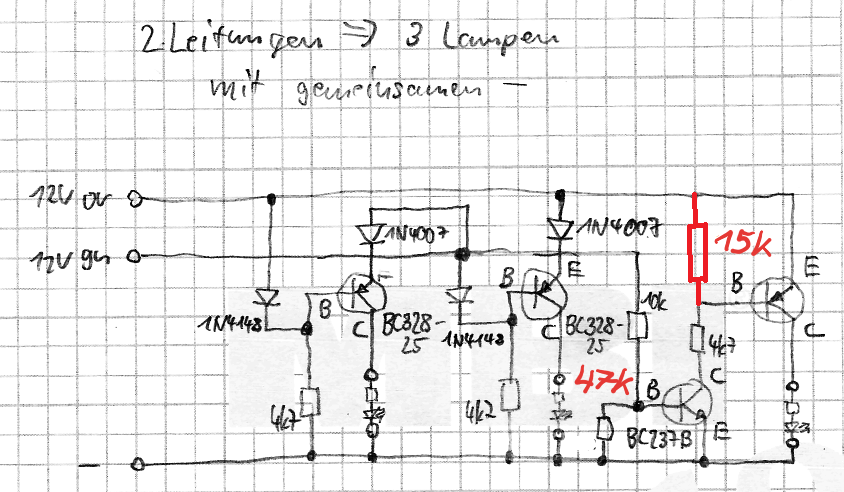 2 Leitungen ⇒ 3 Lampen
mit gemeinsamen –
12V or
1N4007
1N4007
15k
12V gn
B
E
B
E
B
1N4148
C
BC328-
25
1N4148
C
BC328-
25
10k
4k7
C
47k
B
C
4k7
4k2
BC237B
E
–